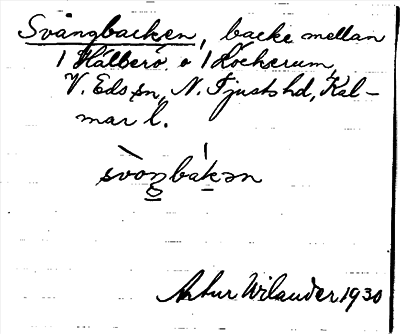 Svångbacken, backe mellan
1 Hålberö o 1 Lockerum,
V. Eds sn, N. Tjusts hd, Kal-
mar l.
svòŋbákən
Artur Wilander 1930